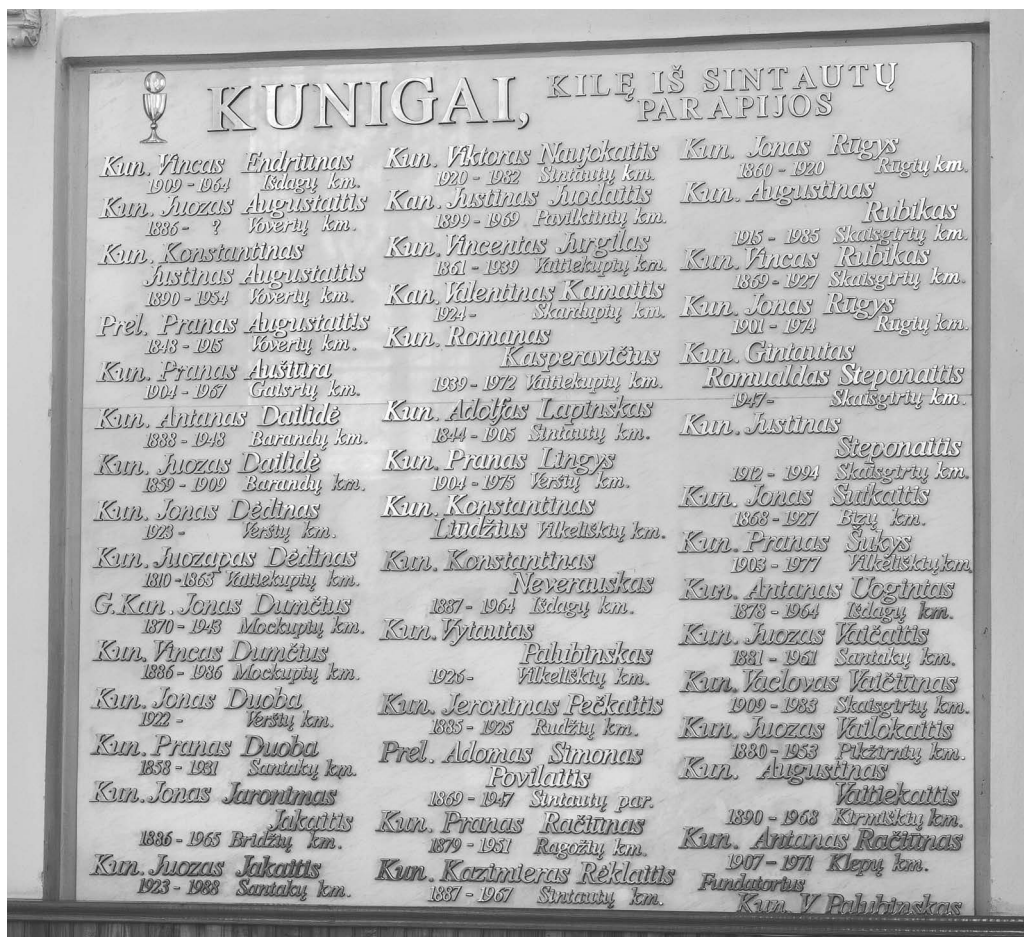 KUNIGAI, KILĘ IŠ SINTAUTŲ
PARAPIJOS
Kun. Vincas Endriūnas
1909 - 1964 Išdagų km.
Kun. Juozas Augustaitis
1886 - ? Voverių km.
Kun. Konstantinas
Justinas Augustaitis
1890 - 1954 Voverių km.
Prel. Pranas Augustaitis
1848 - 1915 Voverių km.
Kun. Pranas Aušiūra
1904 - 1967 Gaisrių km.
Kun. Antanas Dailidė
1888 - 1948 Barandų km.
Kun. Juozas Dailidė
1859 - 1909 Barandų km.
Kun. Jonas Dėdinas
1923 - Veršių km.
Kun. Juozapas Dėdinas
1810 - 1863 Vaitiekupių km.
G. Kan. Jonas Dumčius
1870 - 1943 Mockupių km.
Kun. Vincas Dumčius
1886 - 1986 Mockupių km.
Kun. Jonas Duoba
1922 - Veršių km.
Kun. Pranas Duoba
1858 - 1931 Santakų km.
Kun. Jonas Jaronimas
Jakaitis
1886 - 1965 Bridžių km.
Kun. Juozas Jakaitis
1923 - 1988 Santakų km.
Kun. Viktoras Naujokaitis
1920 - 1982 Sintautų km.
Kan. Justinas Juodaitis
1899 - 1969 Pavilktinių km.
Kun. Vincentas Jurgilas
1861 - 1939 Vaitiekupių km.
Kan. Valentinas Kamaitis
1924 - Skardupių km.
Kun. Romanas
Kasperavičius
1939 - 1972 Vaitiekupių km.
Kun. Adolfas Lapinskas
1844 - 1905 Sintautų km.
Kun. Pranas Lingys
1904 - 1975 Veršių km.
Kun. Konstantinas
Liudžius Vilkeliškių km.
Kun. Konstantinas
Neverauskas
1887 - 1964 Išdagų km.
Kun. Vytautas
Palubinskas
1926 - Vilkeliškių km.
Kun. Jeronimas Pečkaitis
1885 - 1925 Rudžių km.
Prel. Adomas Simonas
Povilaitis
1869 - 1947 Sintautų par.
Kun. Pranas Račiūnas
1879 - 1951 Ragožių km.
Kun. Kazimieras Rėklaitis
1887 - 1967 Sintautų km.
Kun. Jonas Rūgys
1860 - 1920 Rūgių km.
Kun. Augustinas
Rubikas
1915 - 1985 Skaisgirių km.
Kun. Vincas Rubikas
1869 - 1927 Skaisgirių km.
Kun. Jonas Rūgys
1901 - 1974 Rūgių km.
Kun. Gintautas
Romualdas Steponaitis
1947 - Skaisgirių km.
Kun. Justinas
Steponaitis
1912 - 1994 Skaisgirių km.
Kun. Jonas Suikaitis
1868 - 1927 Bizų km.
Kun. Pranas Šukys
1903 - 1977 Vilkeliškių km.
Kun. Antanas Uogintas
1878 - 1964 Išdagų km.
Kun. Juozas Vaičaitis
1881 - 1961 Santakų km.
Kun. Vaclovas Vaičiūnas
1909 - 1983 Skaisgirių km.
Kun. Juozas Vailokaitis
1880 - 1953 Pikžirnių km.
Kun. Augustinas
Vaitiekaitis
1890 - 1968 Kirmiškių km.
Kun. Antanas Račiūnas
1907 - 1971 Klepų km.
Fundatorius
Kun. V. Palubinskas